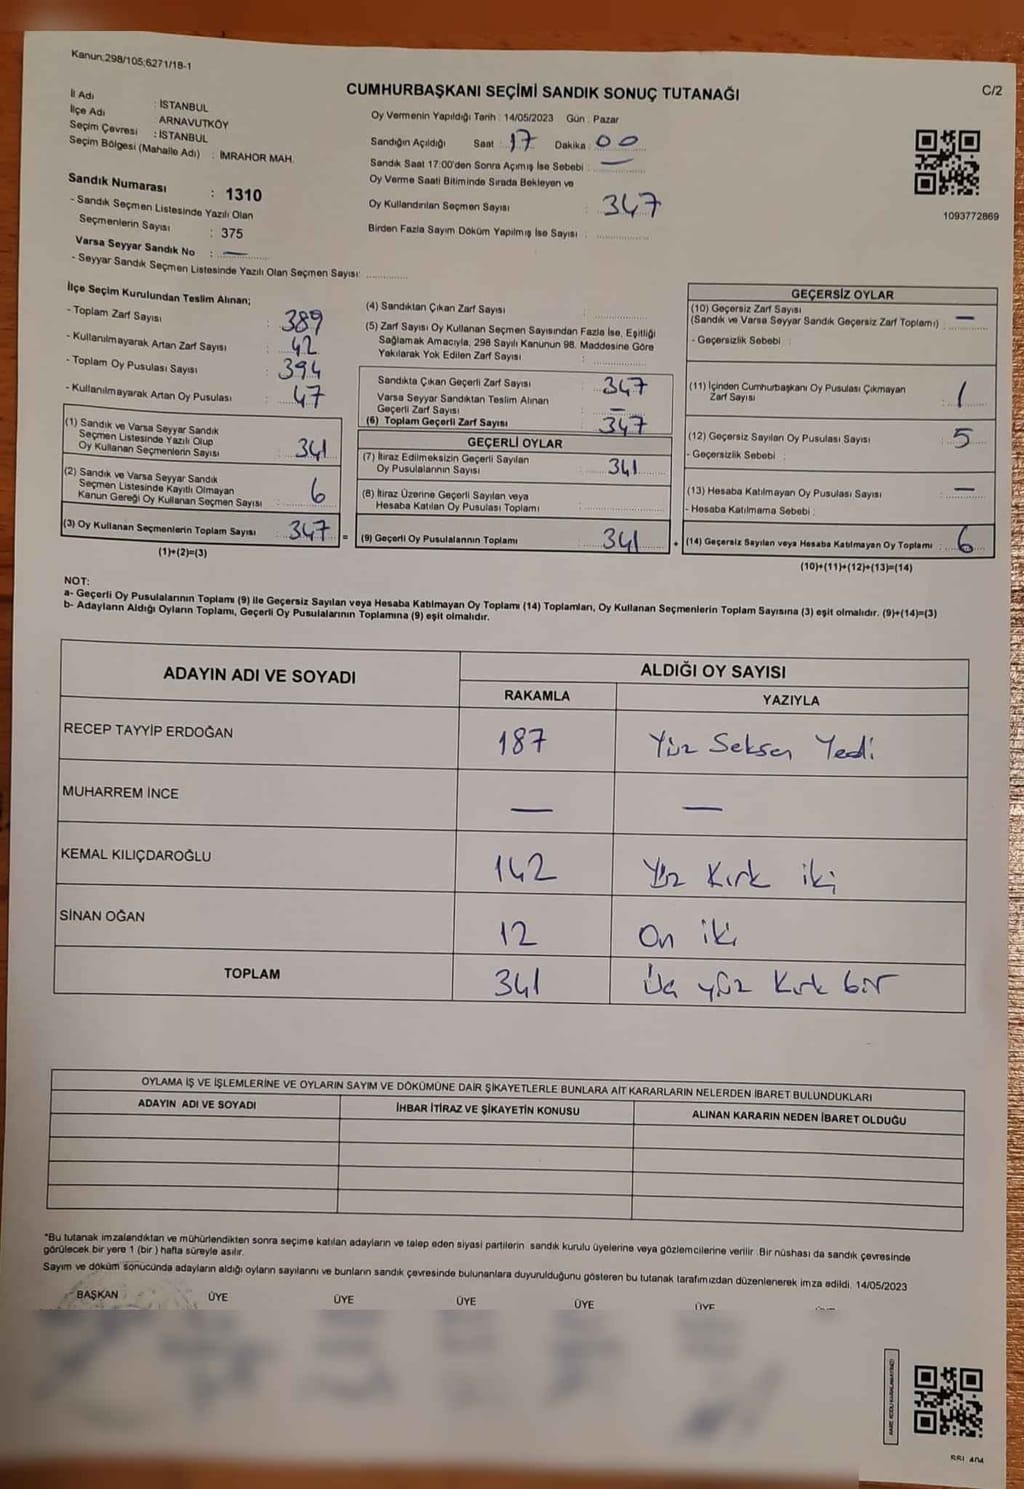 Kanun:298/105;6271/18-1
CUMHURBAŞKANI SEÇİMİ SANDIK SONUÇ TUTANAĞI
C/2
İl Adı : İSTANBUL
İlçe Adı ARNAVUTKÖY
Seçim Çevresi : İSTANBUL
Seçim Bölgesi (Mahalle Adı) : İMRAHOR MAH.
Oy Vermenin Yapıldığı Tarih : 14/05/2023 Gün : Pazar
Sandığın Açıldığı Saat : 17 Dakika : 00
Sandık Saat 17:00'den Sonra Açımış İse Sebebi : —
Oy Verme Saati Bitiminde Sırada Bekleyen ve
Oy Kullandırılan Seçmen Sayısı : 347
Birden Fazla Sayım Döküm Yapılmış İse Sayısı :
1093772869
Sandık Numarası : 1310
- Sandık Seçmen Listesinde Yazılı Olan
Seçmenlerin Sayısı : 375
Varsa Seyyar Sandık No : —
- Seyyar Sandık Seçmen Listesinde Yazılı Olan Seçmen Sayısı:
İlçe Seçim Kurulundan Teslim Alınan;
- Toplam Zarf Sayısı : 389
- Kullanılmayarak Artan Zarf Sayısı : 42
- Toplam Oy Pusulası Sayısı : 394
- Kullanılmayarak Artan Oy Pusulası : 47
(1) Sandık ve Varsa Seyyar Sandık
Seçmen Listesinde Yazılı Olup
Oy Kullanan Seçmenlerin Sayısı : 341
(2) Sandık ve Varsa Seyyar Sandık
Seçmen Listesinde Kayıtlı Olmayan
Kanun Gereği Oy Kullanan Seçmen Sayısı : 6
(3) Oy Kullanan Seçmenlerin Toplam Sayısı : 347 =
(1)+(2)=(3)
(4) Sandıktan Çıkan Zarf Sayısı :
(5) Zarf Sayısı Oy Kullanan Seçmen Sayısından Fazla İse, Eşitliği
Sağlamak Amacıyla, 298 Sayılı Kanunun 98. Maddesine Göre
Yakılarak Yok Edilen Zarf Sayısı :
Sandıkta Çıkan Geçerli Zarf Sayısı : 347
Varsa Seyyar Sandıktan Teslim Alınan
Geçerli Zarf Sayısı : —
(6) Toplam Geçerli Zarf Sayısı : 347
GEÇERLİ OYLAR
(7) İtiraz Edilmeksizin Geçerli Sayılan
Oy Pusulalarının Sayısı : 341
(8) İtiraz Üzerine Geçerli Sayılan veya
Hesaba Katılan Oy Pusulası Toplamı :
(9) Geçerli Oy Pusulalarının Toplamı : 341 +
GEÇERSİZ OYLAR
(10) Geçersiz Zarf Sayısı
(Sandık ve Varsa Seyyar Sandık Geçersiz Zarf Toplamı) : —
- Geçersizlik Sebebi :
(11) İçinden Cumhurbaşkanı Oy Pusulası Çıkmayan
Zarf Sayısı : 1
(12) Geçersiz Sayılan Oy Pusulası Sayısı : 5
- Geçersizlik Sebebi :
(13) Hesaba Katılmayan Oy Pusulası Sayısı : —
- Hesaba Katılmama Sebebi :
(14) Geçersiz Sayılan veya Hesaba Katılmayan Oy Toplamı : 6
(10)+(11)+(12)+(13)=(14)
NOT:
a- Geçerli Oy Pusulalarının Toplamı (9) ile Geçersiz Sayılan veya Hesaba Katılmayan Oy Toplamı (14) Toplamları, Oy Kullanan Seçmenlerin Toplam Sayısına (3) eşit olmalıdır. (9)+(14)=(3)
b- Adayların Aldığı Oyların Toplamı, Geçerli Oy Pusulalarının Toplamına (9) eşit olmalıdır.
ADAYIN ADI VE SOYADI
ALDIĞI OY SAYISI
RAKAMLA YAZIYLA
RECEP TAYYİP ERDOĞAN 187 Yüz Seksen Yedi
MUHARREM İNCE — —
KEMAL KILIÇDAROĞLU 142 Yüz Kırk iki
SİNAN OĞAN 12 On iki
TOPLAM 341 Üç yüz Kırk bir
OYLAMA İŞ VE İŞLEMLERİNE VE OYLARIN SAYIM VE DÖKÜMÜNE DAİR ŞİKAYETLERLE BUNLARA AİT KARARLARIN NELERDEN İBARET BULUNDUKLARI
ADAYIN ADI VE SOYADI İHBAR İTİRAZ VE ŞİKAYETİN KONUSU ALINAN KARARIN NEDEN İBARET OLDUĞU
*Bu tutanak imzalandıktan ve mühürlendikten sonra seçime katılan adayların ve talep eden siyasi partilerin sandık kurulu üyelerine veya gözlemcilerine verilir. Bir nüshası da sandık çevresinde
görülecek bir yere 1 (bir) hafta süreyle asılır.
Sayım ve döküm sonucunda adayların aldığı oyların sayılarını ve bunların sandık çevresinde bulunanlara duyurulduğunu gösteren bu tutanak tarafımızdan düzenlenerek imza edildi. 14/05/2023
BAŞKAN ÜYE ÜYE ÜYE ÜYE ÜYE